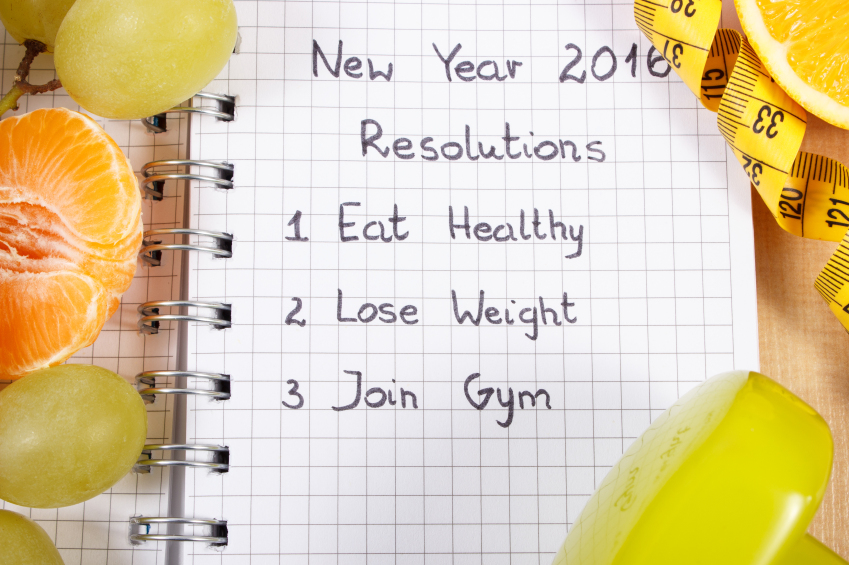 New Year 2016
Resolutions
1 Eat Healthy
2 Lose Weight
3 Join Gym
29
31
115
33
32
120
121